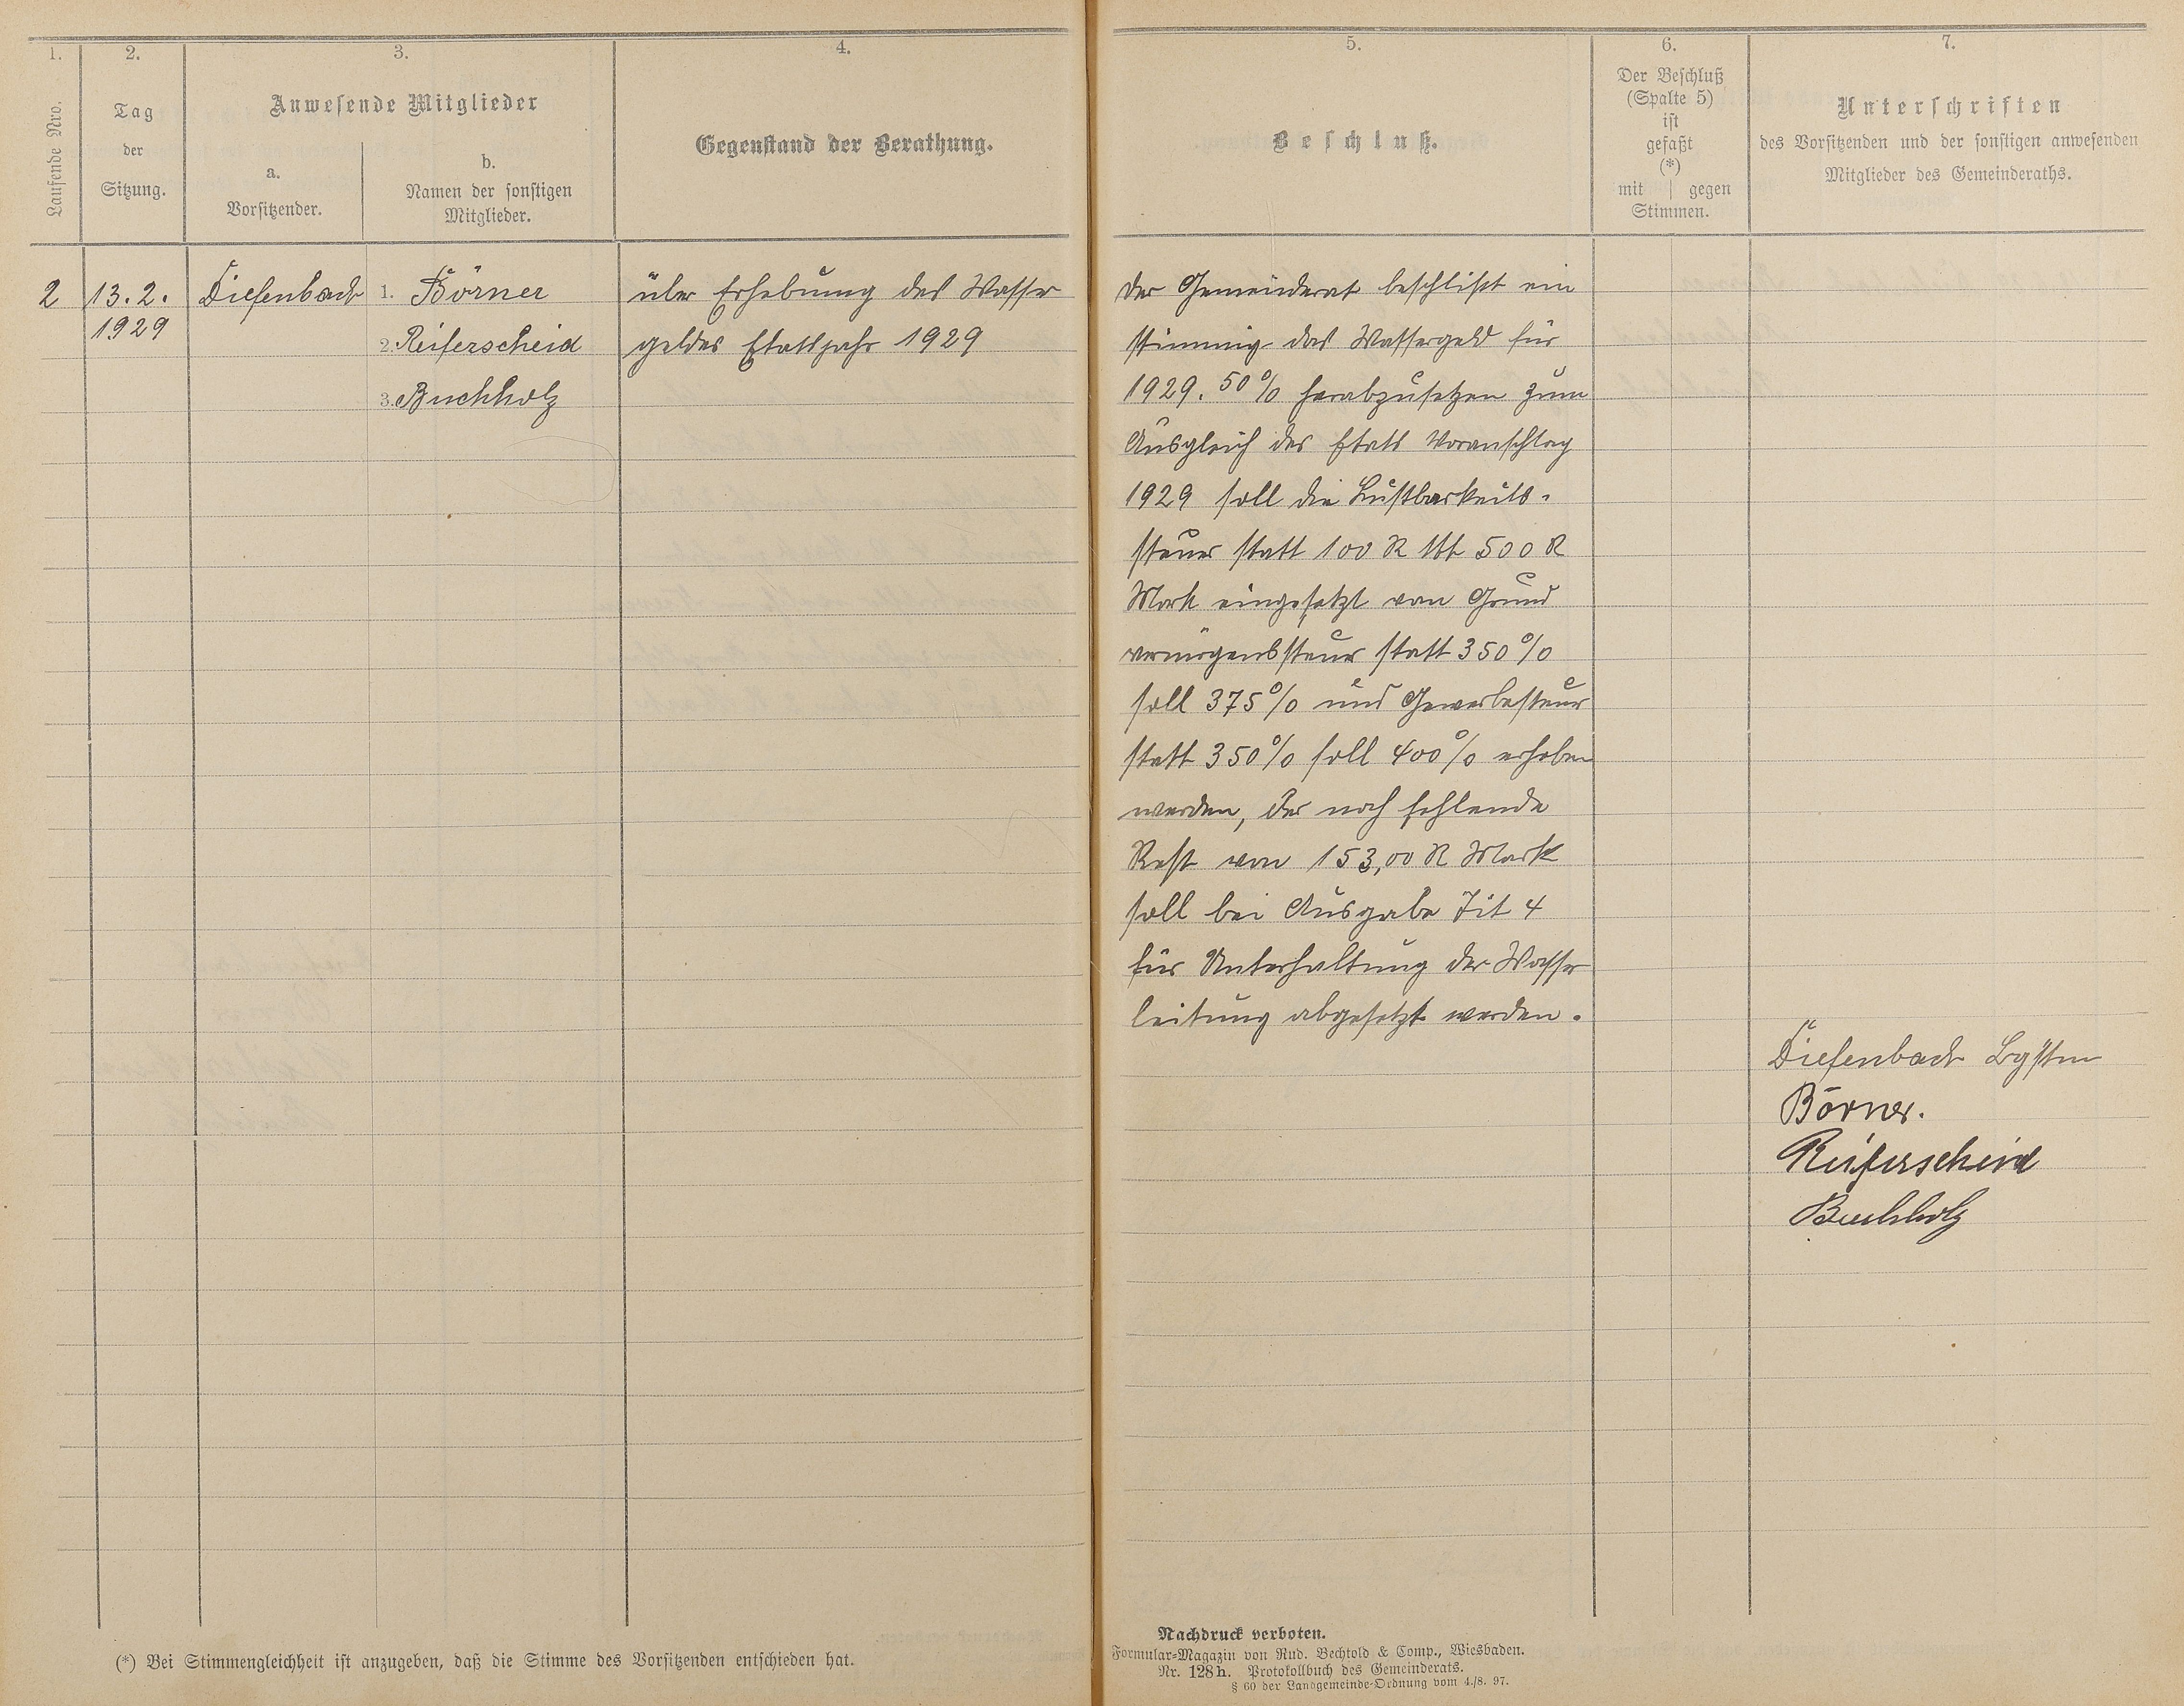 1.
2.
3.
4.
Laufende Nro.
Tag
der
Sitzung.
Anwesende Mitglieder
a.
Vorsitzender.
b.
Namen der sonstigen
Mitglieder.
Gegenstand der Berathung.
2
13.2.
1929
Diefenbach
1. Börner
2. Reiferscheid
3. Buchholz
über Erhebung des Wasser
geldes Etatsjahr 1929
(*) Bei Stimmengleichheit ist anzugeben, daß die Stimme des Vorsitzenden entschieden hat.
5.
6.
7.
Beschluß.
Der Beschluß
(Spalte 5)
ist
gefaßt
(*)
mit | gegen
Stimmen.
Unterschriften
des Vorsitzenden und der sonstigen anwesenden
Mitglieder des Gemeinderaths.
Der Gemeinderat beschlißt ein
stimmig das Wassergeld für
1929. 50% herabzusetzen zum
Ausgleich des Etats Voranschlag
1929 soll die Lustbarkeits-
steuer statt 100 R Mk 500 R
Mark eingesetzt von Grund
vermögenssteuer statt 350%
soll 375% und Gewerbesteuer
statt 350% soll 400% erhoben
werden, der noch fehlende
Rest von 153,00 R Mark
soll bei Ausgabe Tit 4
für Unterhaltung der Wasser
leitung abgesetzt werden.
Diefenbach Bgstm
Börner.
Reiferscheid
Buchholz
Nachdruck verboten.
Formular-Magazin von Rud. Bechtold & Comp., Wiesbaden.
Nr. 128h. Protokollbuch des Gemeinderats.
§ 60 der Landgemeinde-Ordnung vom 4./8. 97.